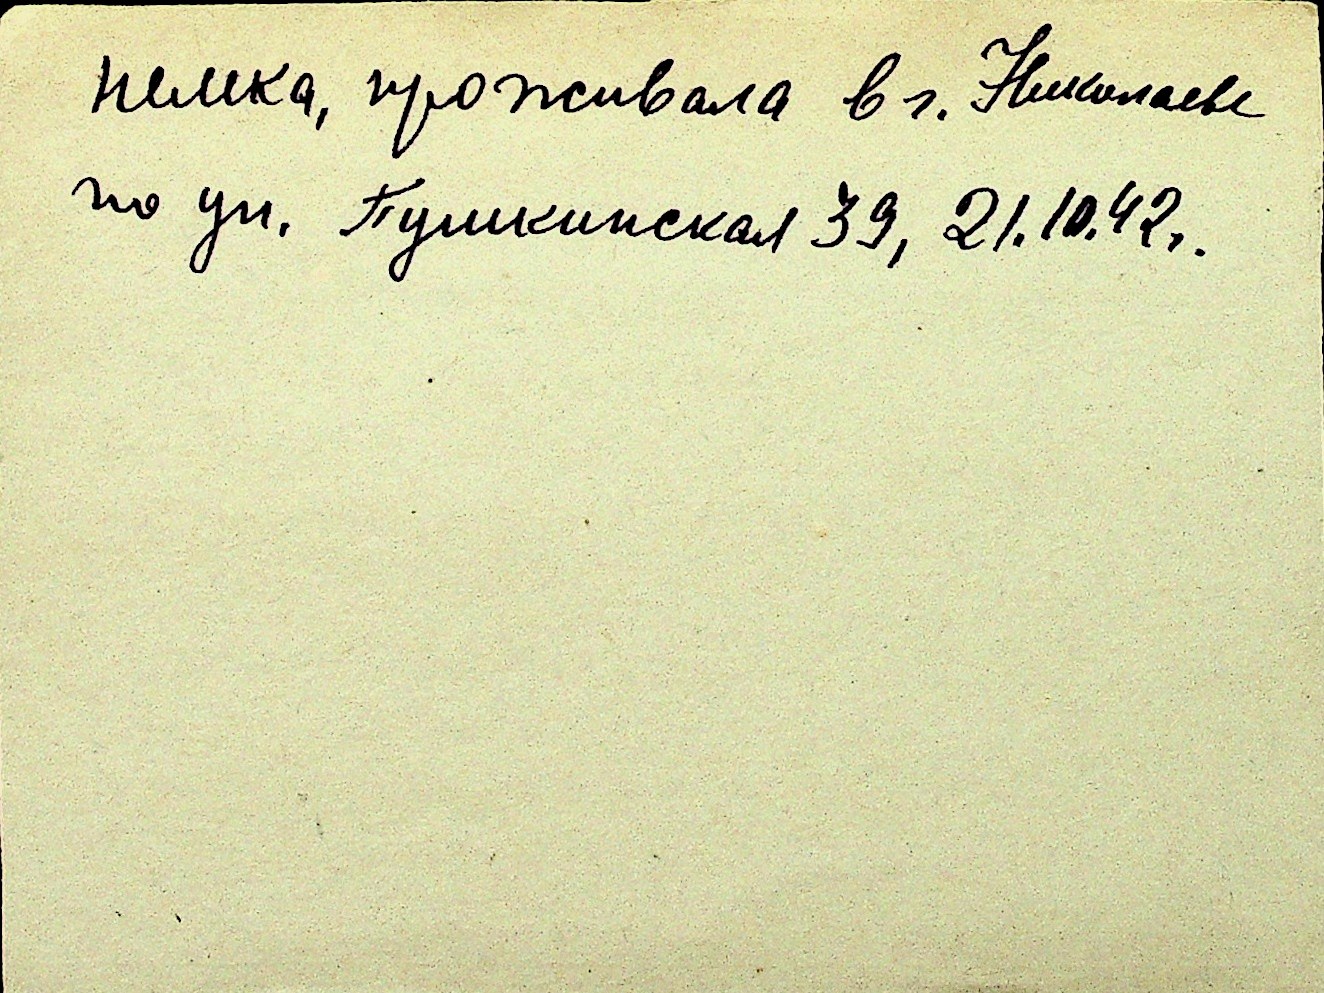 немка, проживала в г. Николаеве
по ул. Пушкинская 39, 21.10.42г.